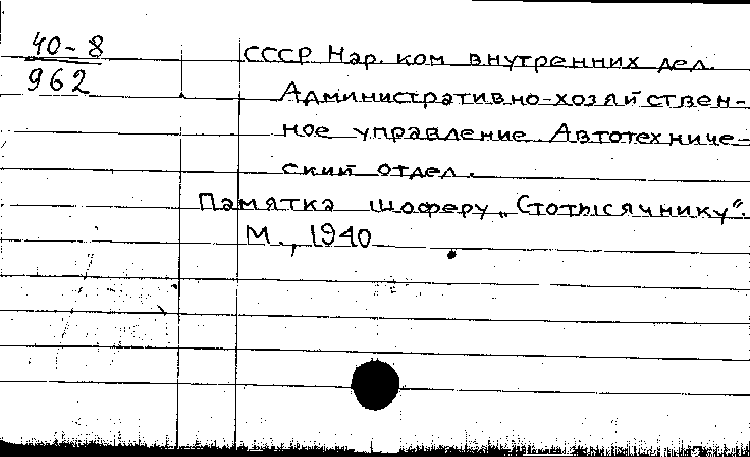 40-8
962
СССР Нар. ком внутренних дел.
Административно-хозяйствен-
ное управление Автотехниче-
ский отдел.
Памятка шоферу „Стотысячнику“.
М., 1940